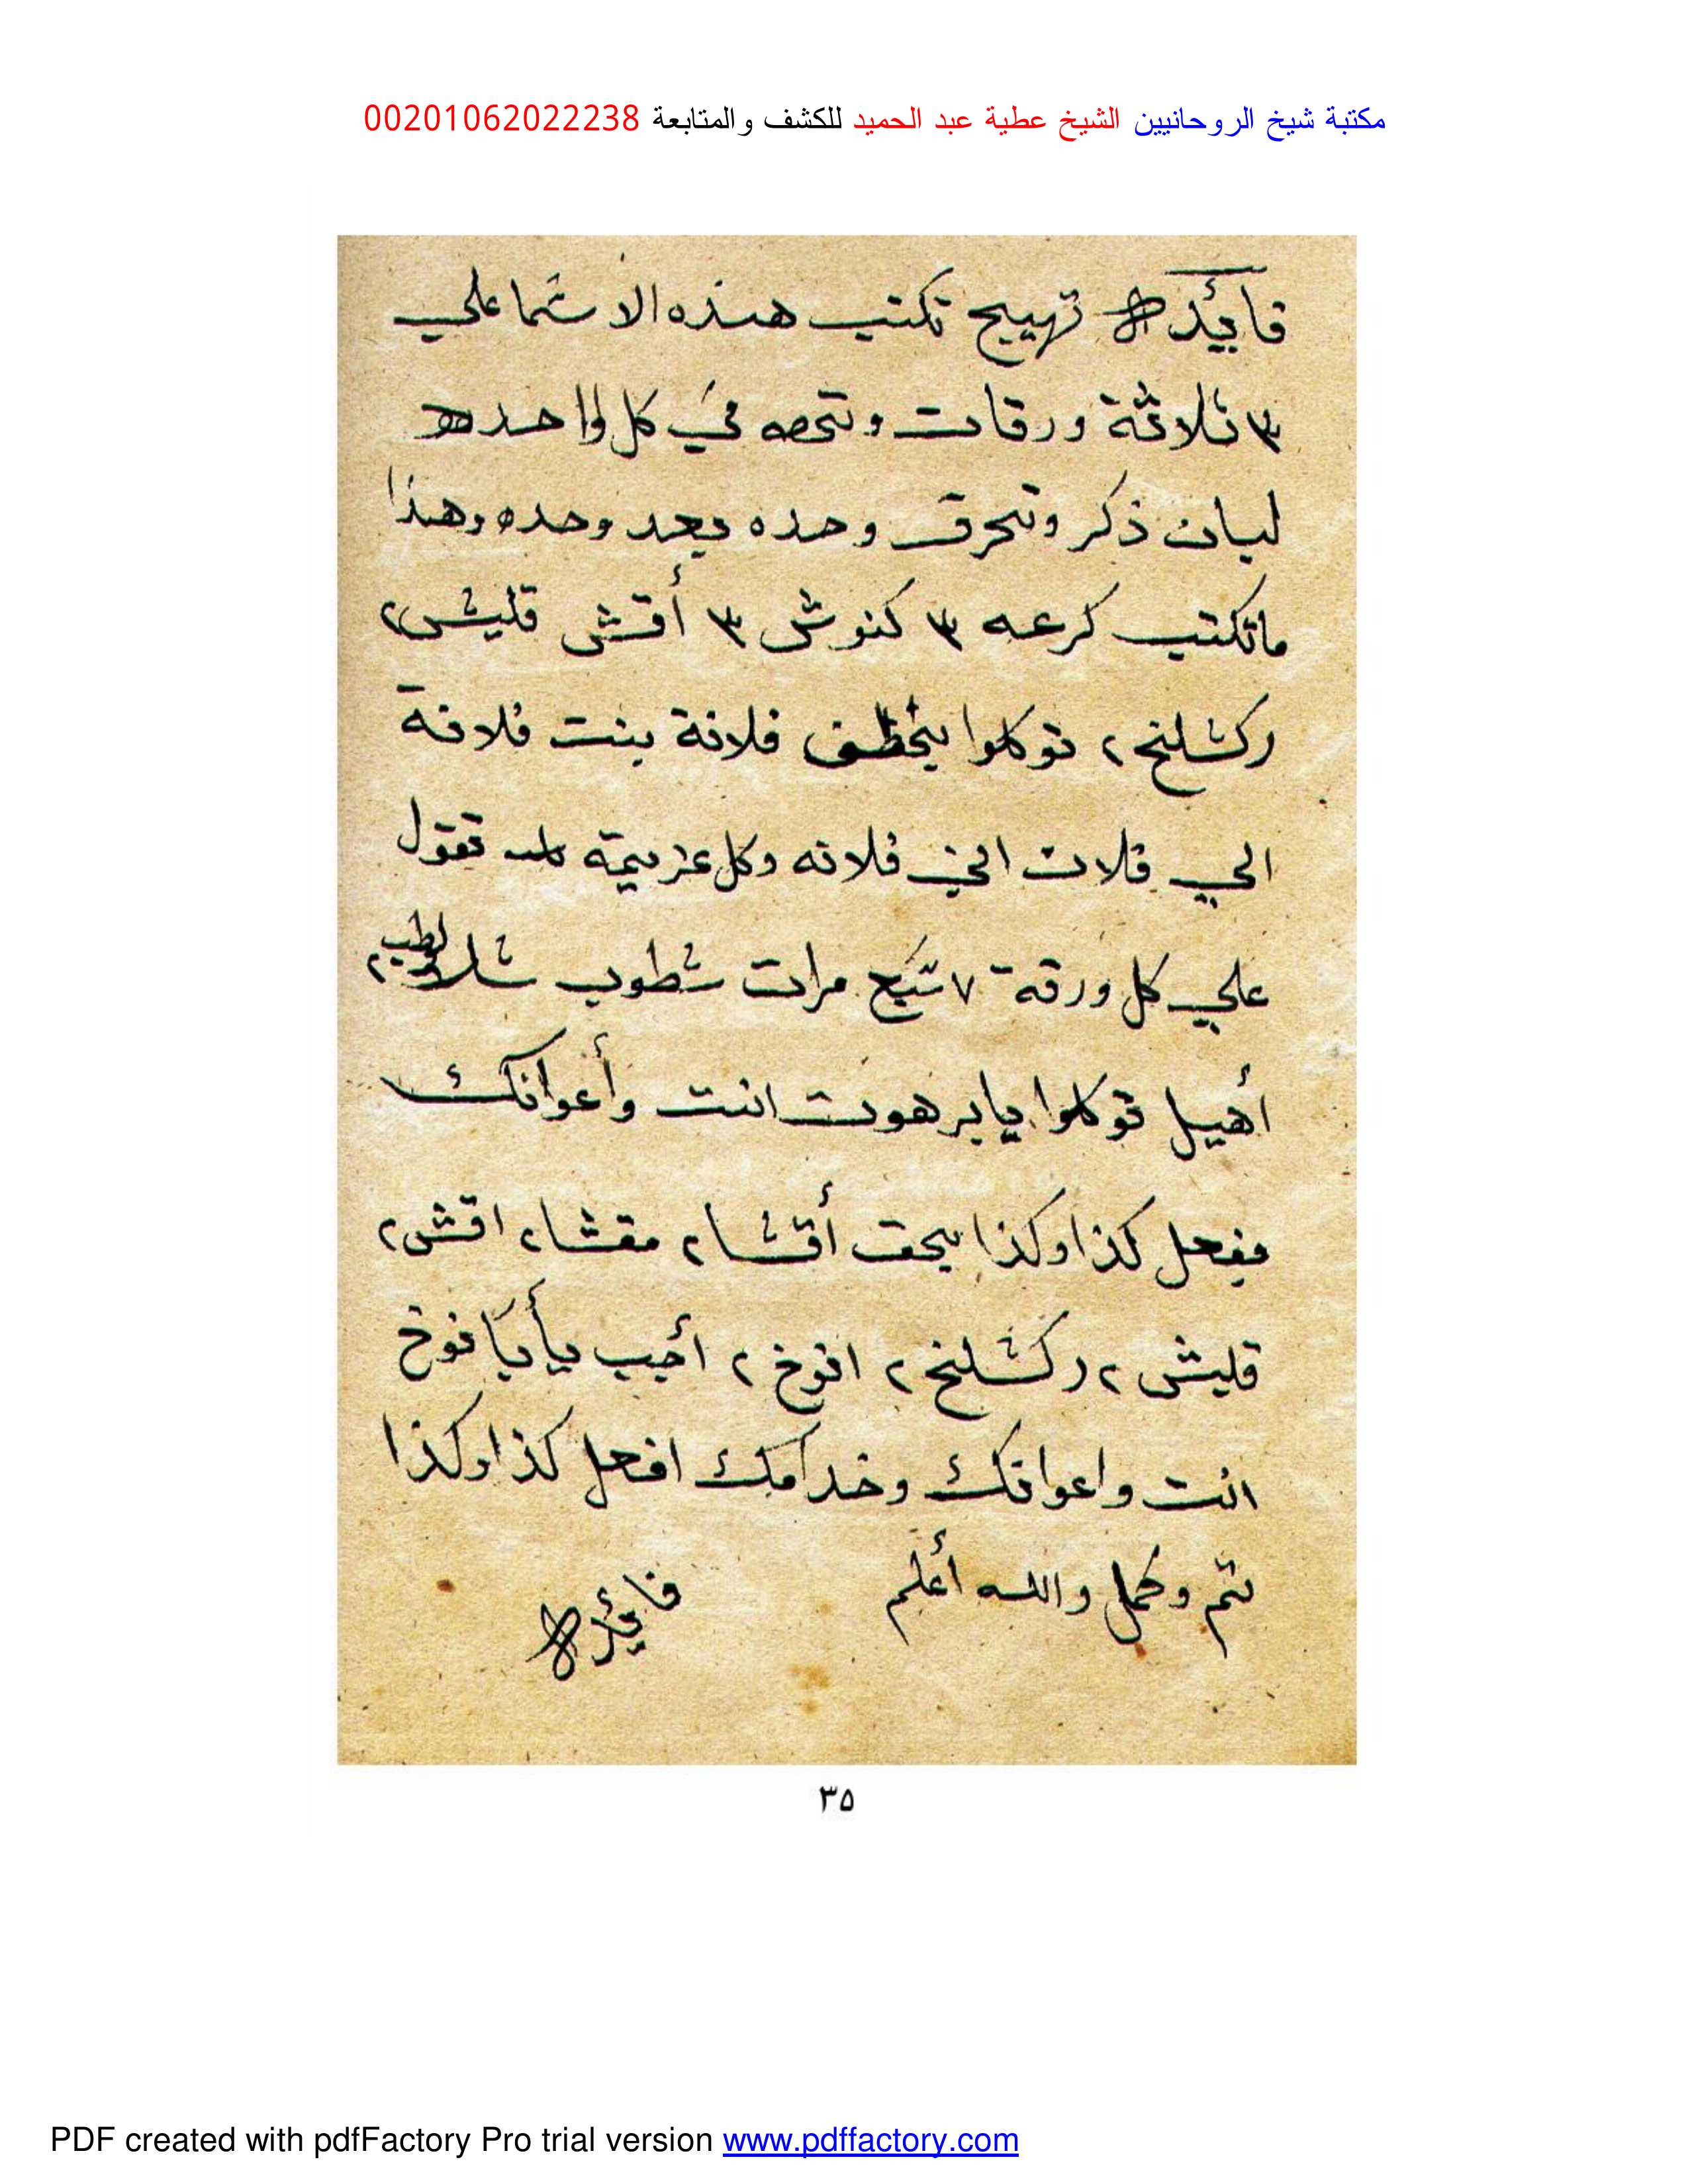 مكتبة شيخ الروحانيين الشيخ عطية عبد الحميد للكشف والمتابعة 00201062022238
فأيده تهييج تكتب هذه الاسما علي
٣ ثلاثة ورقات وتحصه في كل واحده
لبان ذكر وتحرق وحده بعد وحده وهذا
ماتكتب كرعه ٣ كنوش ٣ أقش قليش ٢
ركشلنخ ٢ توكلوا بخطف فلانة بنت فلانة
الي فلان ابن فلانه وكل عزيمة تقول
علي كل ورقة ٧ سبع مرات شطوب
أهيل توكلوا يا برهوت انت وأعوانك
بفعل كذا وكذا بحق أقشا ٢ مقشا ٢ اقش ٢
قليش ٢ ركشلنخ ٢ انوخ ٢ أجب يأبا نوخ
انت واعوانك وخدامك افعل كذا وكذا
تم وكمل والله أعلم فايده
٣٥
PDF created with pdfFactory Pro trial version www.pdffactory.com